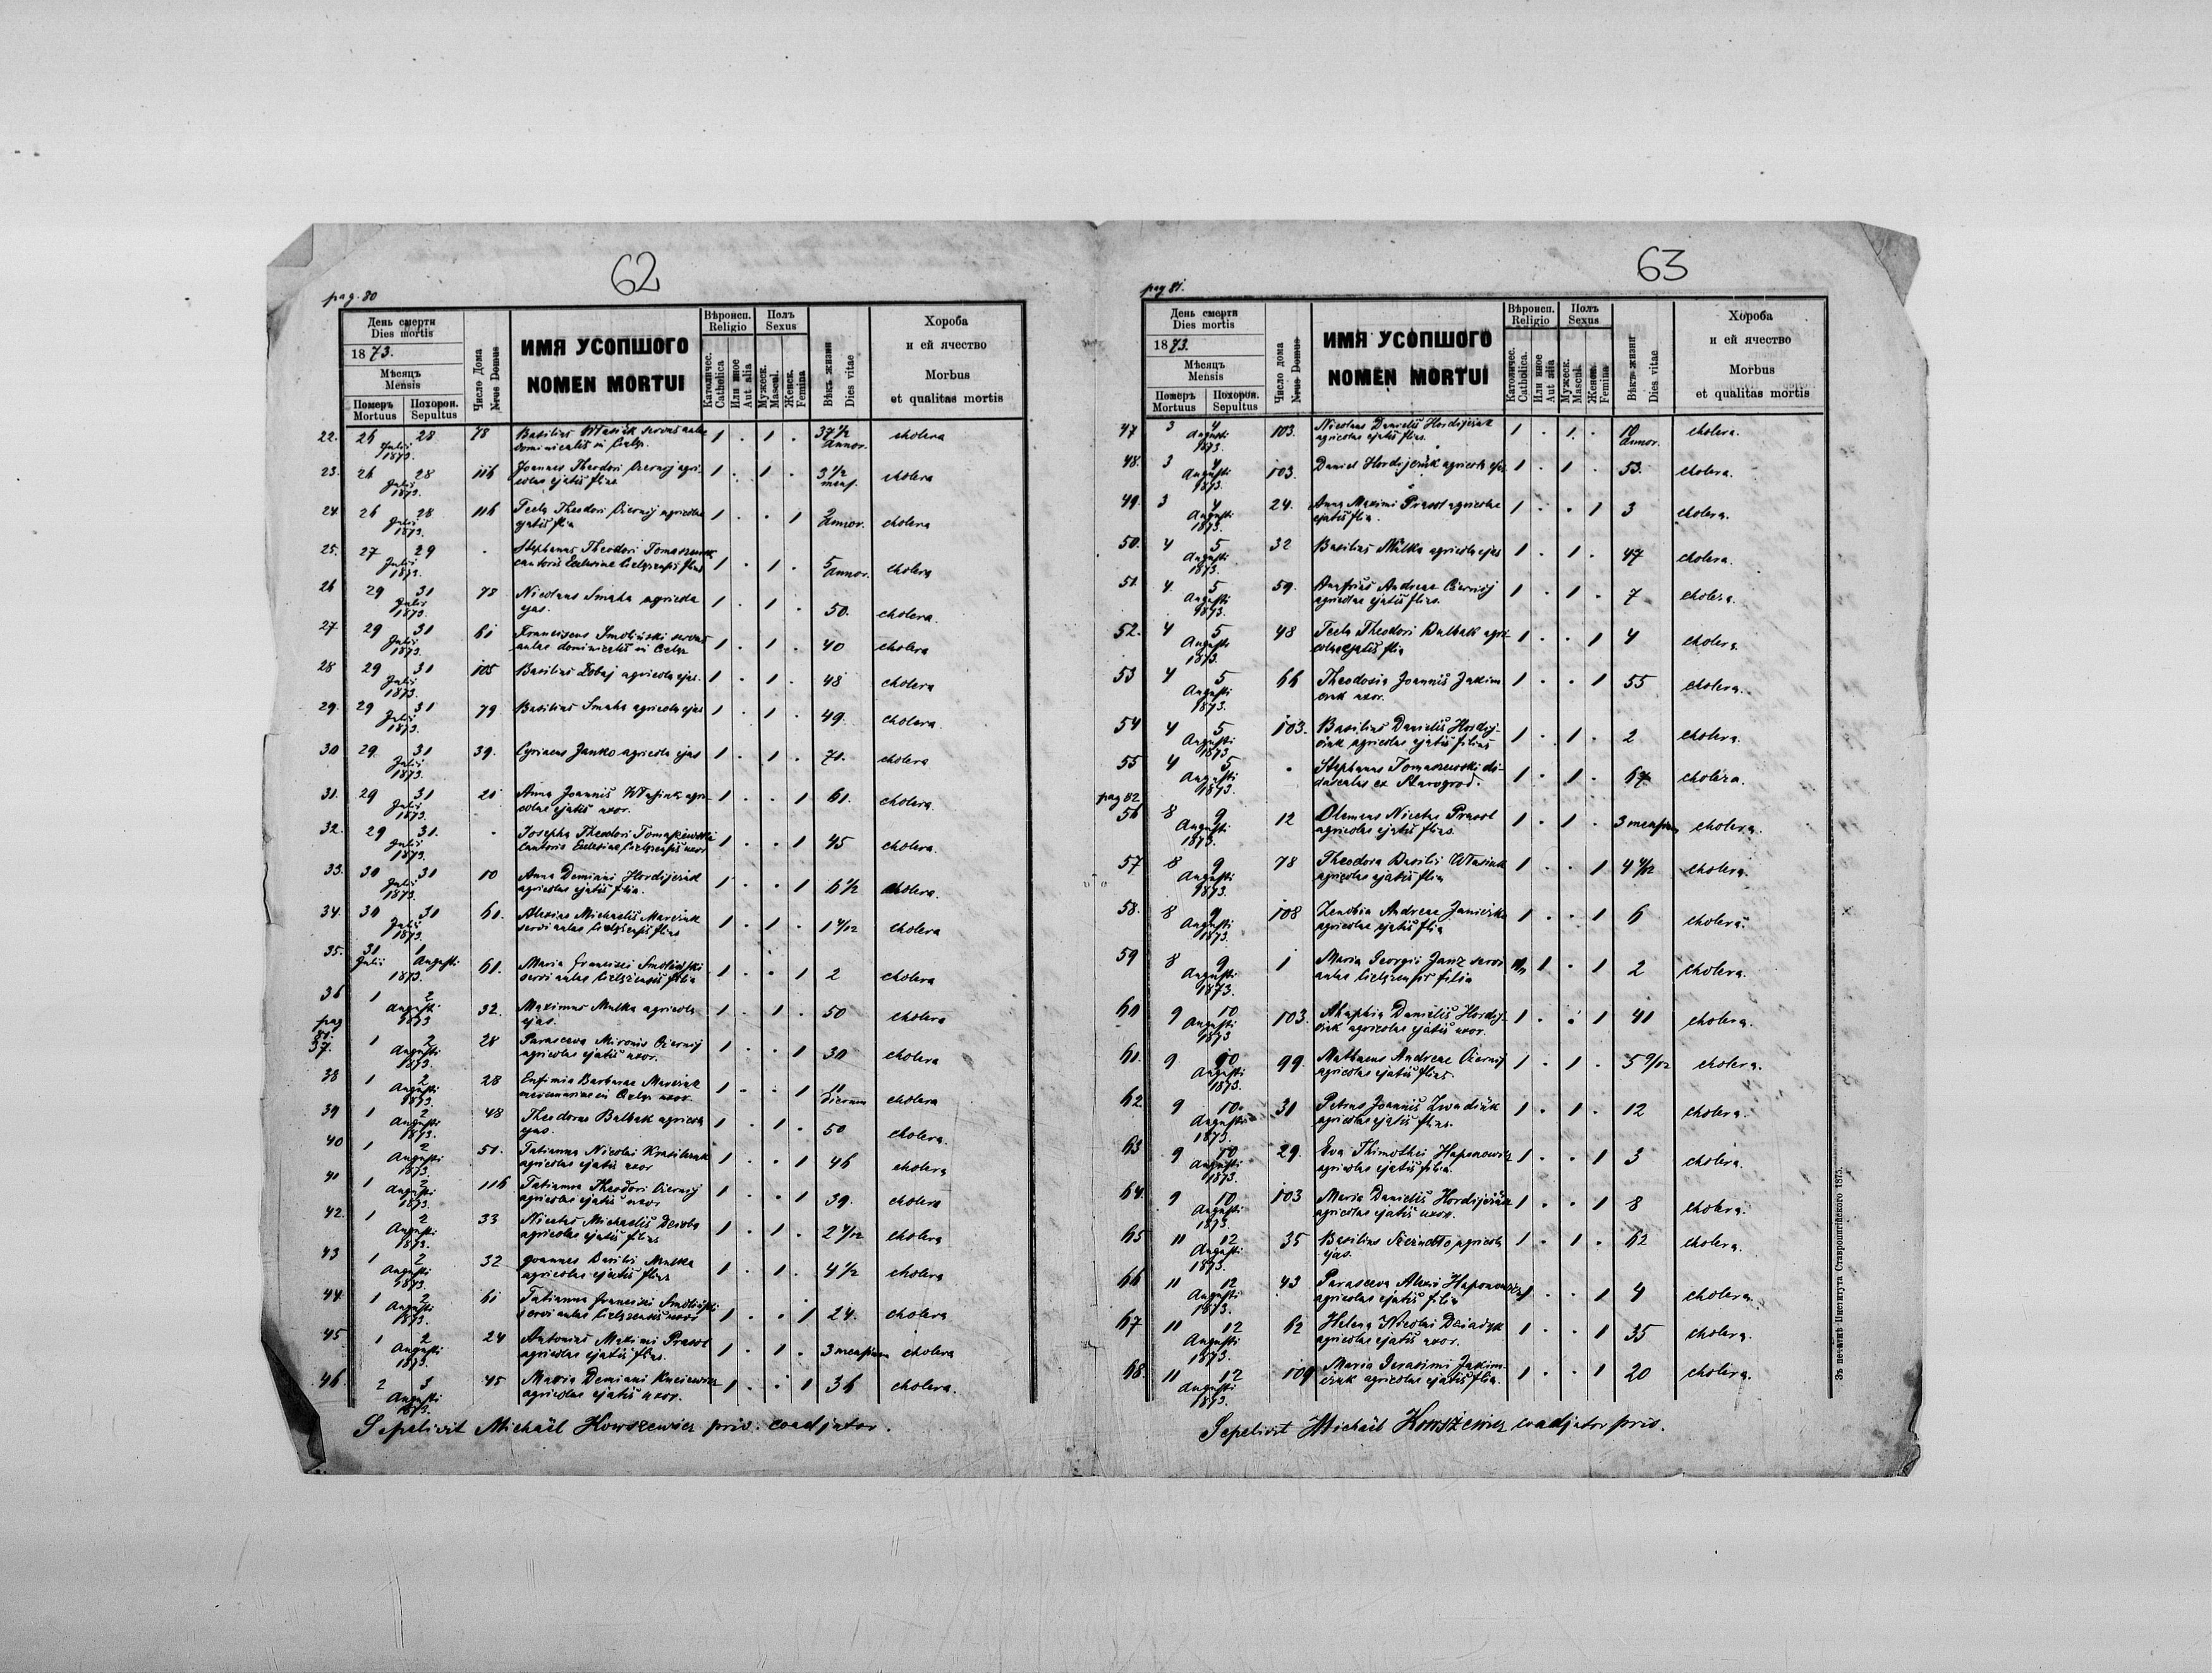 62
pag. 80
День смерти
Dies mortis
1873.
Мѣсяцъ
Mensis
Померъ
Mortuus
Похорон.
Sepultus
Число Дома
Nrus Domus
ИМЯ УСОПШОГО
NOMEN MORTUI
Вѣроисп.
Religio
Католичес.
Catholica
Или иное
Aut alia
Полъ
Sexus
Мужеск.
Mascul.
Женск.
Femina
Вѣкъ жизни
Dies vitae
Хороба
и ей ячество
Morbus
et qualitas mortis
22. 26 28 Julii 1873. 78 Basilius Własiuk servus aulae 1 . 1 . 37 1/2 annor. cholera
dominicalis in
23. 26 28 Julii 1873. 116 Joannes Theodori Czernij agri- 1 . 1 . 3 1/2 mens. cholera
colae ejatis flius
24 26 28 Julii 1873. 116 Tecla Theodori Czernij agricolae 1 . . 1 2 annor. cholera
ejatis flia
25. 27 29 Julii 1873. . Stephanus Theodori 1 . 1 . 5 annor. cholera
cantoris Ecclesiae flius
26 29 31 Julii 1873. 78 Nicolaus Smaha agricola 1 . 1 . 50. cholera.
ejas.
27 29 31 Julii 1873. 61 Franciscus Smoliński servus 1 . 1 . 40 cholera
aulae dominicalis in
28 29 31 Julii 1873. 105 Basilius Łobaj agricola ejas. 1 . 1 . 48 cholera
29. 29 31 Julii 1873. 79 Basilius Smaha agricola ejas 1 . 1 . 49. cholera.
30 29. 31 Julii 1873. 39. Cyriacus Janko agricola ejas 1 . 1 . 71. cholera
31. 29 31 Julii 1873. 21 Anna Joannis agri- 1 . . 1 61. cholera.
colae ejatis uxor.
32. 29 31. Julii 1873. . Josepha Theodori 1 . . 1 45 cholera.
Cantoris Ecclesiae uxor
33. 30 31 Julii 1873. 10 Anna Demiani Hordijczuk 1 . . 1 6 1/2 cholera.
agricolae ejatis filia.
34. 30 31 Julii 1873. 61. Alexius Michaelis Marciuk 1 . 1 . cholera
servi aulae flius
35. 31 Julii 1 Augusti 1873. 61. Maria Francisci Smoliński 1 . . 1 2 cholera
servi aulae filia
36 1 2 Augusti 1873 32. Maximus Mulka agricola 1 . 1 . 50 cholera
ejas.
pag 81.
37. 1 2 Augusti 1873. 28 Parasceva Mironis Czernij 1 . . 1 30 cholera
agricolae ejatis uxor.
38 1 2 Augusti 1873. 28 Eufimia Barbarae Marciuk 1 . . 1 11 dierum cholera
39 1 2 Augusti 1873. 48 Theodorus Balbak agricola 1 . 1 . 50 cholera.
ejas.
40 1 2 Augusti 1873. 51. Tatianna Nicolai 1 . . 1 46 cholera
agricolae ejatis uxor
41 1 2 Augusti 1873. 116 Tatianna Theodori Czernij 1 . . 1 39. cholera
agricolae ejatis uxor
42. 1 2 Augusti 1873. 33 Nicetas Michaelis 1 . 1 . cholera
agricolae ejatis filius
43 1 2 Augusti 1873. 32 Joannes Basilii Mulka 1 . 1 . 4 1/2 cholera
agricolae ejatis flius
44. 1 2 Augusti 1873. 61 Tatianna Francisci Smoliński 1 . . 1 24. cholera
servi aulae uxor
45 1 2 Augusti 1873. 24 Antonius Maximi Prasol 1 . 1 . 3 mensium cholera
agricolae ejatis flius.
46. 2 3 Augusti 1873. 45 Maria Demiani 1 . . 1 36 cholera.
agricolae ejatis uxor.
Sepelivit Michaël Howszewicz priv. coadjutor.
63
pag 81.
День смерти
Dies mortis
1873.
Мѣсяцъ
Mensis
Померъ
Mortuus
Похорон.
Sepultus
Число дома
Nrus Domus
ИМЯ УСОПШОГО
NOMEN MORTUI
Вѣроисп.
Religio
Католичес.
Catholica.
Или иное
Aut alia
Полъ
Sexus
Мужеск.
Mascul.
Женск.
Femina
Вѣкъ жизни
Dies vitae
Хороба
и ей ячество
Morbus
et qualitas mortis
47 3 4 Augusti 1873. 103. Nicolaus Danielis Hordijczuk 1 . 1. . 10 annor. cholera.
agricolae ejatis flius.
48. 3 4 Augusti 1873. 103. Daniel Hordijczuk agricola ejas 1 . 1 . 53. cholera.
49. 3 4 Augusti 1873. 24. Anna Maximi Prasol agricolae 1 . . 1 3 cholera.
ejatis flia.
50. 4 5 Augusti 1873. 32 Basilius Mulka agricola ejas 1 . 1. . 47 cholera.
51. 4. 5 Augusti 1873. 59. Andreae Czernij 1 . 1 . 7 cholera.
agricolae ejatis flius.
52. 4 5 Augusti 1873. 48 Tecla Theodori Balbak agri- 1 . . 1 4 cholera.
colae ejatis flia
53 4 5 Augusti 1873. 66 Theodosia Joannis Jakim 1 . . 1 55 cholera.
czuk uxor.
54 4 5 Augusti 1873 103. Basilius Danielis Hordij- 1 . 1 . 2 cholera.
czuk agricolae ejatis filius
55 4 5 Augusti 1873. . Stephanus Tomaszewski di- 1 . 1 . 67 cholera.
dascalus ex Starogrod.
pag 82
56 8 9 Augusti 1873. 12 Clemens Nicetae Prasol 1 . 1 . 3 mensium cholera.
agricolae ejatis flius.
57 8 9 Augusti 1873. 78 Theodora Basilii Własiuk 1 . . 1 cholera.
agricolae ejatis flia
58. 8 9 Augusti 1873. 108 Zenobia Andreae 1 . . 1 6 cholera.
agricolae ejatis flia
59 8 9 Augusti 1873. 1 Maria Georgii Janz servi 1 . 1 2 cholera.
aulae filia
60 9 10 Augusti 1873 103. Ahaphia Danielis Hordij- 1 . . 1 41 cholera.
czuk agricolae ejatis uxor.
61. 9 10 Augusti 1873. 99. Mathaeus Andreae Czernij 1 . 1 . 5 9/12 cholera.
agricolae ejatis flius.
62. 9 10. Augusti 1873. 31 Petrus Joannis 1 . 1 . 12 cholera.
agricolae ejatis flius.
63 9 10 Augusti 1873. 29. Eva Thimothei Haponowicz 1 . . 1 3 cholera.
agricolae ejatis filia.
64. 9 10 Augusti 1873. 103 Maria Danielis Hordijczuk 1 . . 1 8 cholera.
agricolae ejatis uxor.
65 11 12 Augusti 1873. 35 Basilius agricola 1 . 1 . 62 cholera.
ejas.
66 11 12 Augusti 1873. 43 Parasceva Alexii Haponowicz 1 . . 1 4 cholera.
agricolae ejatis filia
67 11 12 Augusti 1873. 62 Helena Nicolai Dziadyk 1 . . 1 35 cholera.
agricolae ejatis uxor.
68. 11 12 Augusti 1873. 109 Maria Gerasimi Jakim- 1 . . 1 20 cholera.
czuk agricolae ejatis flia.
Sepelivit Michaël Howszewicz coadjutor priv.
Зъ печатнѣ Института Ставропигійского 1875.